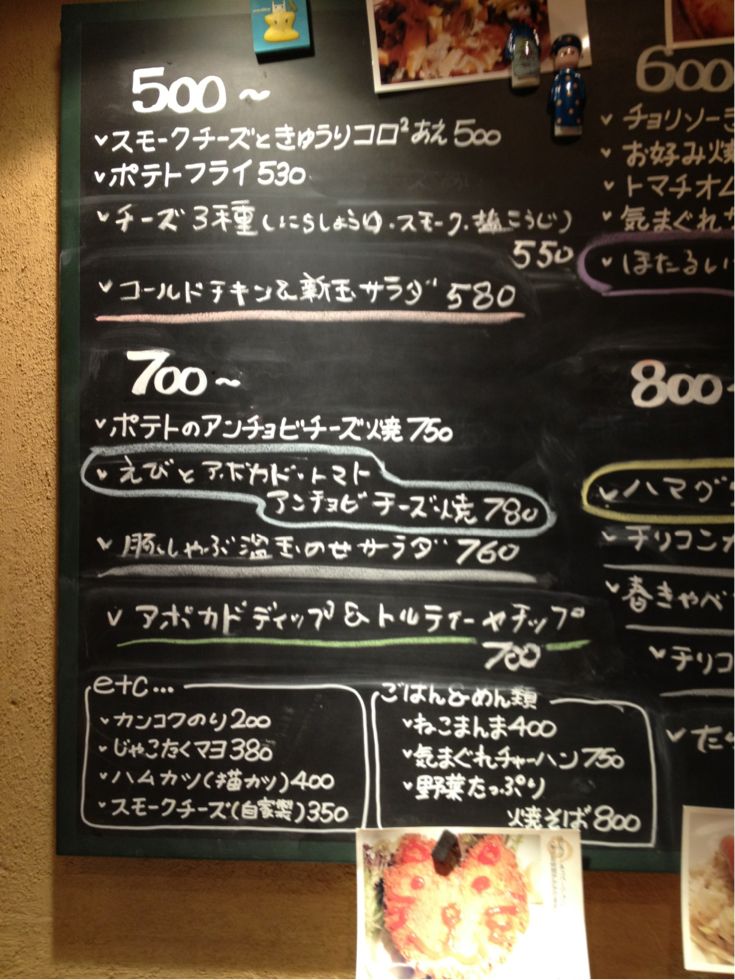 500~
スモークチーズときゅうりコロ²あえ 500
ポテトフライ 530
チーズ 3種(にこらしょうゆ・スモーク・塩こうじ)
550
コールドチキン&新玉サラダ 580
700~
ポテトのアンチョビチーズ焼 750
えびとアボカド・トマト
アンチョビチーズ焼 780
豚しゃぶ温玉のせサラダ 760
アボカドディップ&トルティーヤチップ
700
etc...
カンコクのり 200
じゃこたくマヨ 380
ハムカツ(猫カツ) 400
スモークチーズ(自家製) 350
ごはん&めん類
ねこまんま 400
気まぐれチャーハン 750
野菜たっぷり
焼そば 800
600
チョリソー
お好み焼
トマチオム
気まぐれ
ほたるい
800~
ハマグ
チリコンカ
春きゃべ
チリコ
た